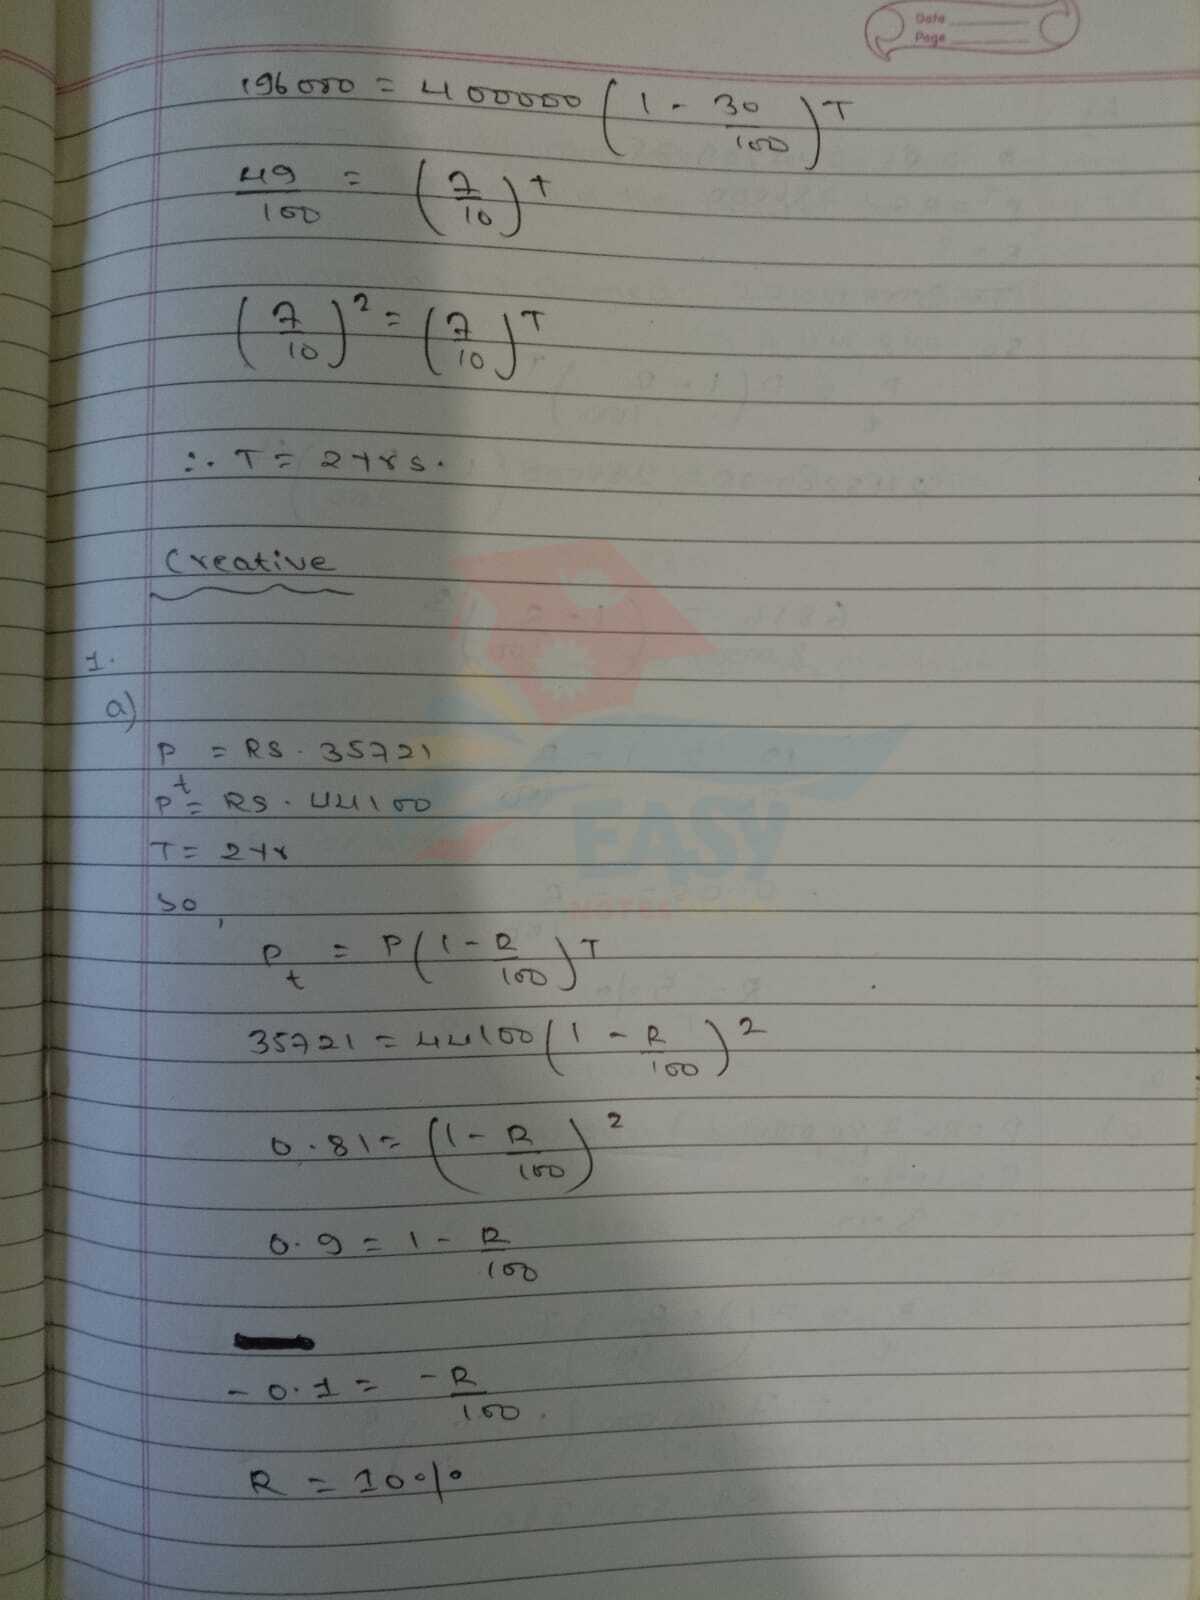 Date
Page
196000 = 400000 (1 - 30/100)^T
49/100 = (7/10)^T
(7/10)^2 = (7/10)^T
∴ T = 2 yrs.
Creative
1.
a)
P = RS. 35721
P^t = RS. 44100
T = 2 yr
so,
P_t = P(1 - R/100)^T
35721 = 44100 (1 - R/100)^2
0.81 = (1 - R/100)^2
0.9 = 1 - R/100
-0.1 = -R/100.
R = 10%
EASY
NOTES